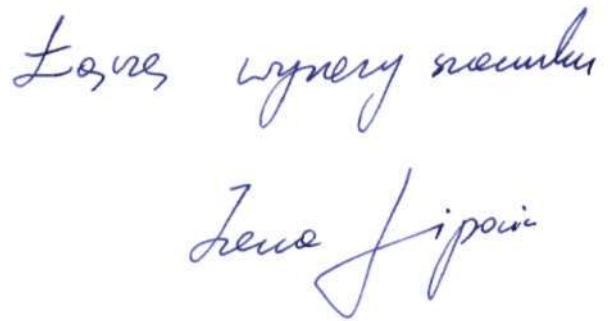 Łączę wyrazy szacunku
Irena Lipowicz